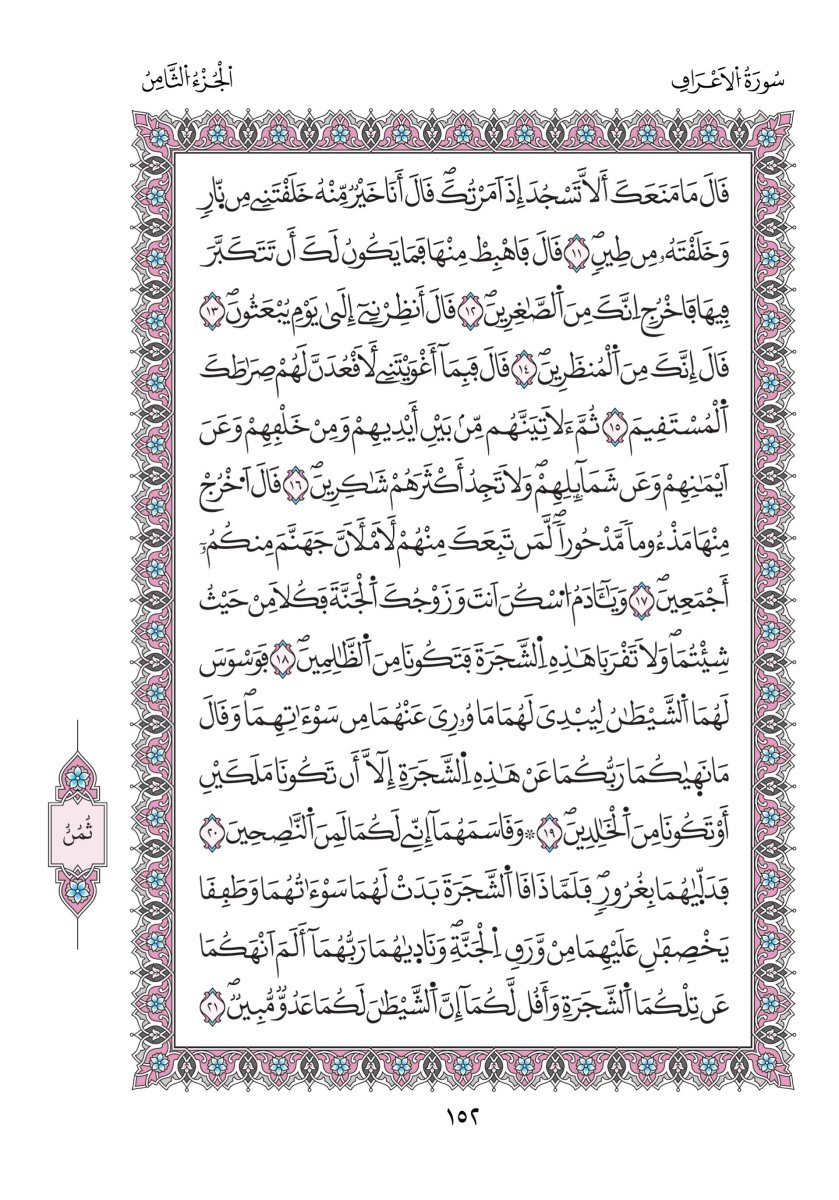 سُورَةُ الَاعْرَافِ
الْجُزْءُ الثَّامِنُ
قَالَ مَا مَنَعَكَ أَلَّا تَسْجُدَ إِذَ اَمَرْتُكَۖ قَالَ أَنَا خَيْرٞ مِّنْهُ خَلَقْتَنِے مِن نّ۪ارٖ
وَخَلَقْتَهُۥ مِن طِينٖۖ ١١ قَالَ فَاهْبِطْ مِنْهَا فَمَا يَكُونُ لَكَ أَن تَتَكَبَّرَ
فِيهَا فَاخْرُجِ اِنَّكَ مِنَ اَ۬لصَّٰغِرِينَۖ ١٢ قَالَ أَنظِرْنِےٓ إِلَىٰ يَوْمِ يُبْعَثُونَۖ ١٣
قَالَ إِنَّكَ مِنَ اَ۬لْمُنظَرِينَۖ ١٤ قَالَ فَبِمَآ أَغْوَيْتَنِے لَأَقْعُدَنَّ لَهُمْ صِرَٰطَكَ
اَ۬لْمُسْتَقِيمَ ١٥ ثُمَّ ءَلَاتِيَنَّهُم مِّنۢ بَيْنِ أَيْدِيهِمْ وَمِنْ خَلْفِهِمْ وَعَنَ
اَيْمَٰنِهِمْ وَعَن شَمَآئِلِهِمْۖ وَلَا تَجِدُ أَكْثَرَهُمْ شَٰكِرِينَۖ ١٦ قَالَ اَ۟خْرُجْ
مِنْهَا مَذْءُوماٗ مَّدْحُوراٗۖ لَّمَن تَبِعَكَ مِنْهُمْ لَأَمْلَأَنَّ جَهَنَّمَ مِنكُمُۥٓ
أَجْمَعِينَۖ ١٧ وَيَٰٓـَٔادَمُ اُ۟سْكُنَ اَنتَ وَزَوْجُكَ اَ۬لْجَنَّةَ فَكُلَا مِنْ حَيْثُ
شِئْتُمَاۖ وَلَا تَقْرَبَا هَٰذِهِ اِ۬لشَّجَرَةَ فَتَكُونَا مِنَ اَ۬لظَّٰلِمِينَۖ ١٨ فَوَسْوَسَ
لَهُمَا اَ۬لشَّيْطَٰنُ لِيُبْدِيَ لَهُمَا مَا وُۥرِيَ عَنْهُمَا مِن سَوْءَٰتِهِمَاۖ وَقَالَ
مَا نَه۪يٰكُمَا رَبُّكُمَا عَنْ هَٰذِهِ اِ۬لشَّجَرَةِ إِلَّآ أَن تَكُونَا مَلَكَيْنِ
أَوْ تَكُونَا مِنَ اَ۬لْخَٰلِدِينَۖ ١٩ ۞ وَقَاسَمَهُمَآ إِنِّے لَكُمَا لَمِنَ اَ۬لنَّٰصِحِينَ ٢٠
فَدَلّ۪يٰهُمَا بِغُرُورٖۖ فَلَمَّا ذَاقَا اَ۬لشَّجَرَةَ بَدَتْ لَهُمَا سَوْءَٰتُهُمَا وَطَفِقَا
يَخْصِفَٰنِ عَلَيْهِمَا مِنْ وَّرَقِ اِ۬لْجَنَّةِۖ وَنَاد۪يٰهُمَا رَبُّهُمَآ أَلَمَ اَنْهَكُمَا
عَن تِلْكُمَا اَ۬لشَّجَرَةِ وَأَقُل لَّكُمَآ إِنَّ اَ۬لشَّيْطَٰنَ لَكُمَا عَدُوّٞ مُّبِينٞۖ ٢١
ثُمُنُ
١٥٢